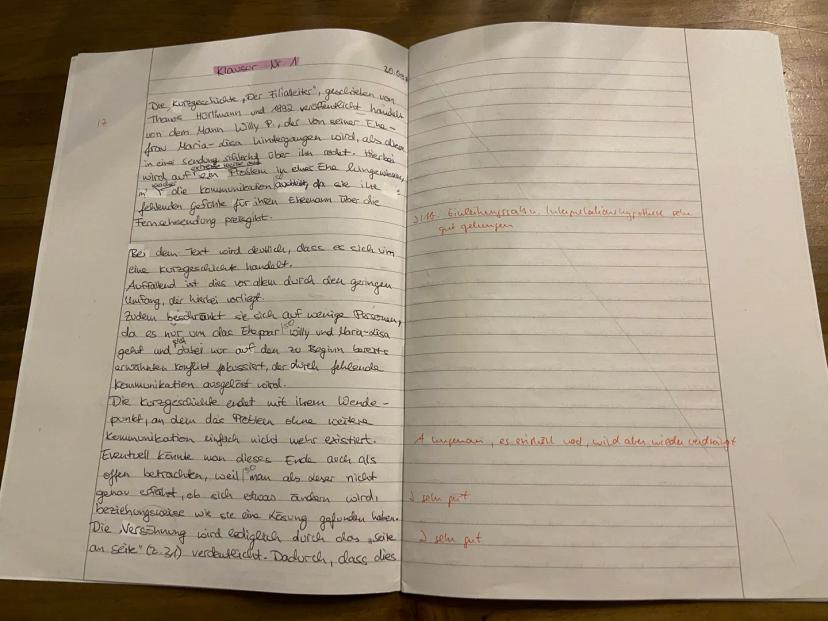 Klausur Nr 1
20.
17
Die Kurzgeschichte „Der Filialleiter", geschrieben von
Thomas Hürlimann und 1992 veröffentlicht handelt
von dem Mann Willy P., der von seiner Ehe-
frau Maria-Lisa hintergangen wird, als diese
in einer Sendung schlecht über ihn redet. Hierbei
wird auf ein Problem in einer Ehe hingewiesen,
in welcher die Kommunikation, da sie ihre
fehlenden Gefühle für ihren Ehemann über die
Fernsehsendung preisgibt.
Einleitungssatz u. Interpretationshypothese sehr
gut gelungen
Bei dem Text wird deutlich, dass es sich um
eine Kurzgeschichte handelt.
Auffallend ist dies vor allem durch den geringen
Umfang, der hierbei vorliegt.
Zudem beschränkt sie sich auf wenige Personen,
da es nur um das Ehepaar Willy und Maria-Lisa
geht und sich dabei nur auf den zu Beginn bereits
erwähnten Konflikt fokussiert, der durch fehlende
Kommunikation ausgelöst wird.
Die Kurzgeschichte endet mit ihrem Wende-
punkt, an dem das Problem ohne weitere
Kommunikation einfach nicht mehr existiert.
A ungenau, es existiert noch, wird aber wieder verdrängt
Eventuell könnte man dieses Ende auch als
offen betrachten, weil man als Leser nicht
genau erfährt, ob sich etwas ändern wird,
sehr gut
beziehungsweise wie sie eine Lösung gefunden haben.
Die Versöhnung wird lediglich durch das „Seite
an Seite" (Z. 31) verdeutlicht. Dadurch, dass dies
sehr gut